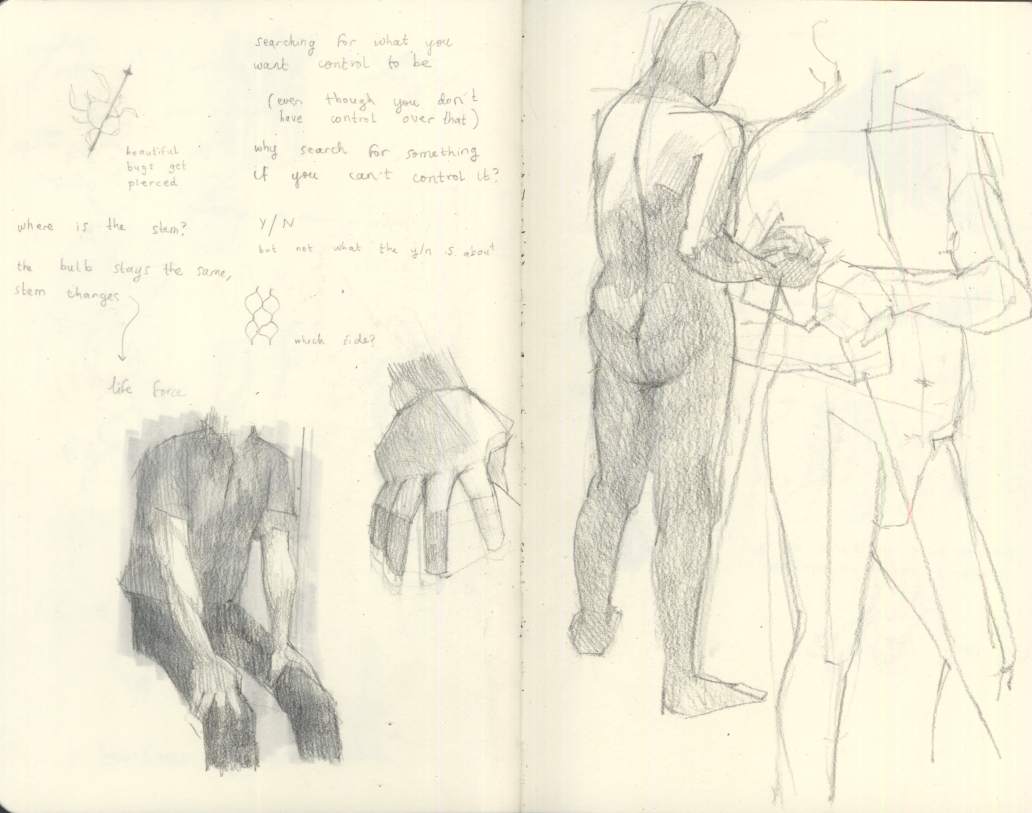 searching for what you
want control to be
(even though you don't
have control over that)
why search for something
if you can't control it?
beautiful
bugs get
pierced
where is the stem?
the bulb stays the same,
stem changes
life force
Y/N
but not what the y/n is about
which side?